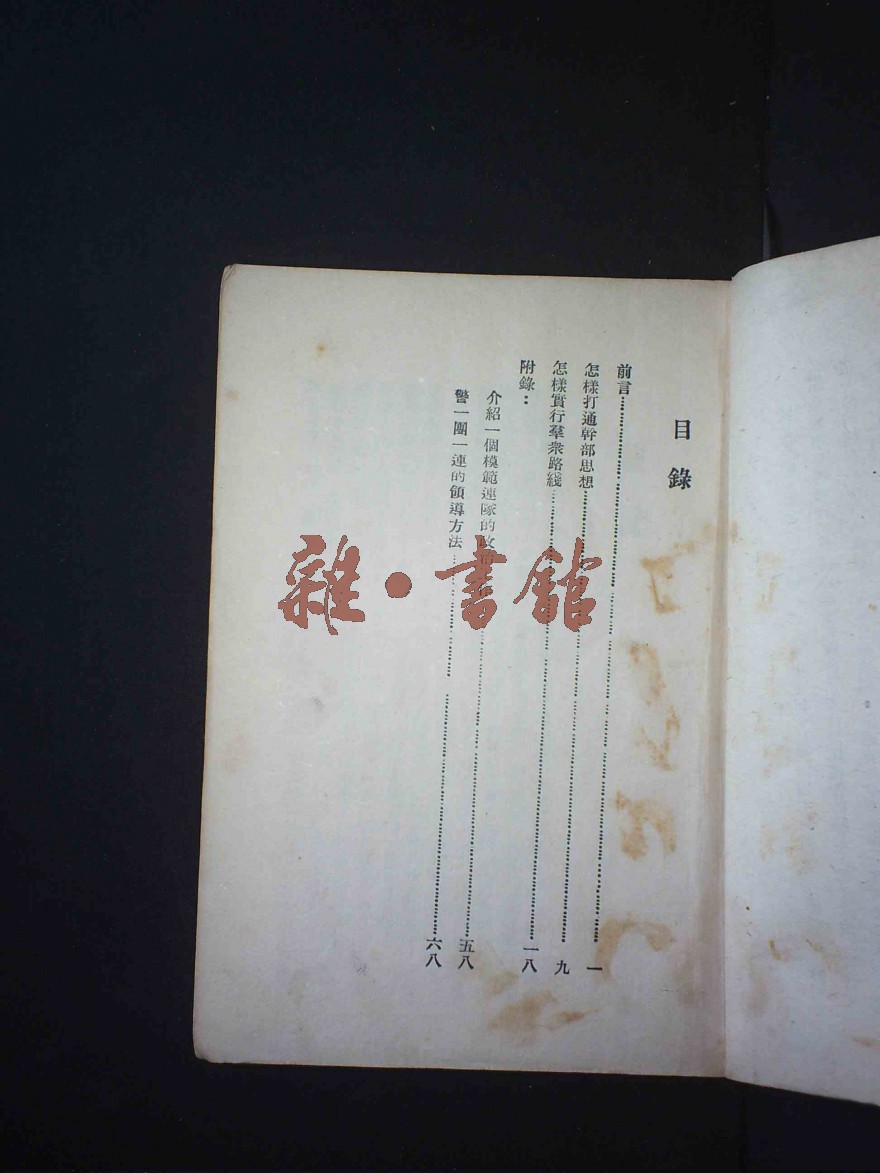 目錄
前言……一
怎樣打通幹部思想……九
怎樣實行羣衆路綫……一八
附錄：
介紹一個模範連隊的政……五八
警一團一連的領導方法……六八
雜·書館